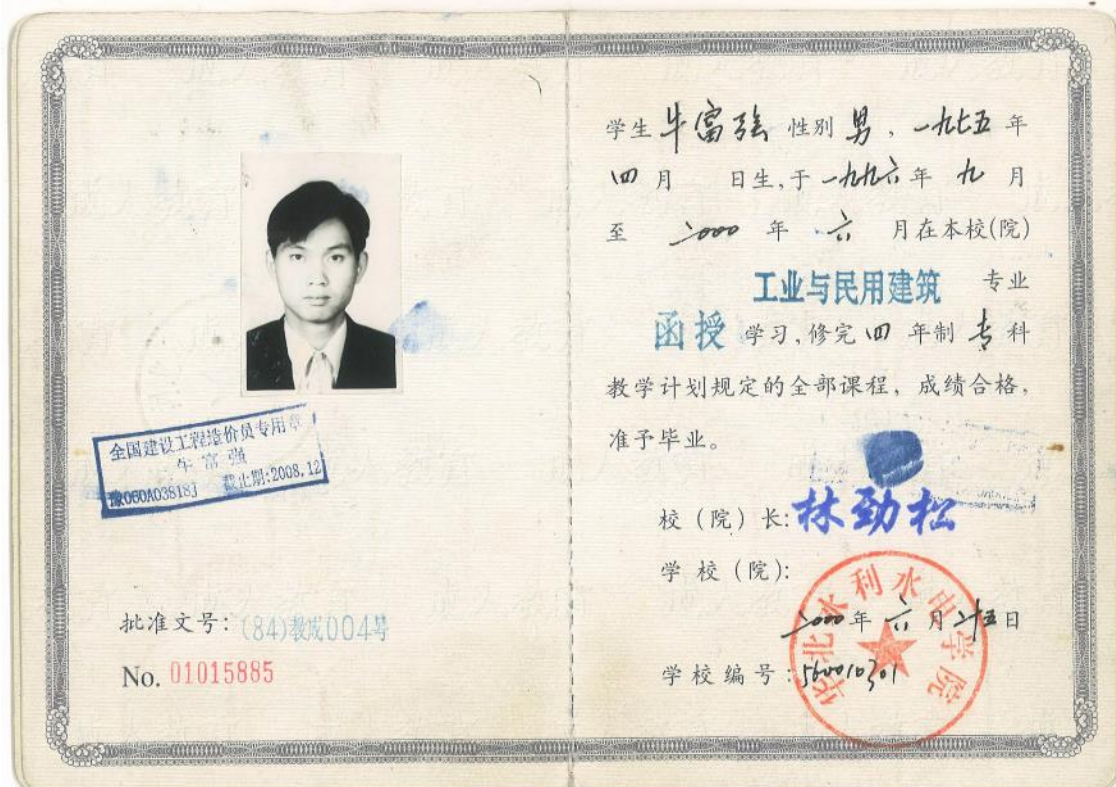 全国建设工程造价员专用章
牛富强
豫060A03818J 截止期:2008.12
批准文号:(84)教成004号
No. 01015885
学生 牛富强 性别 男 , 一九七五 年
四 月 日生,于 一九九六 年 九 月
至 二000 年 六 月在本校(院)
工业与民用建筑 专业
函授 学习,修完 四 年制 专 科
教学计划规定的全部课程, 成绩合格,
准予毕业。
校(院)长:林劲松
学校(院):
华北水利水电学院
二000年 六 月 廿五日
学校编号:560010301